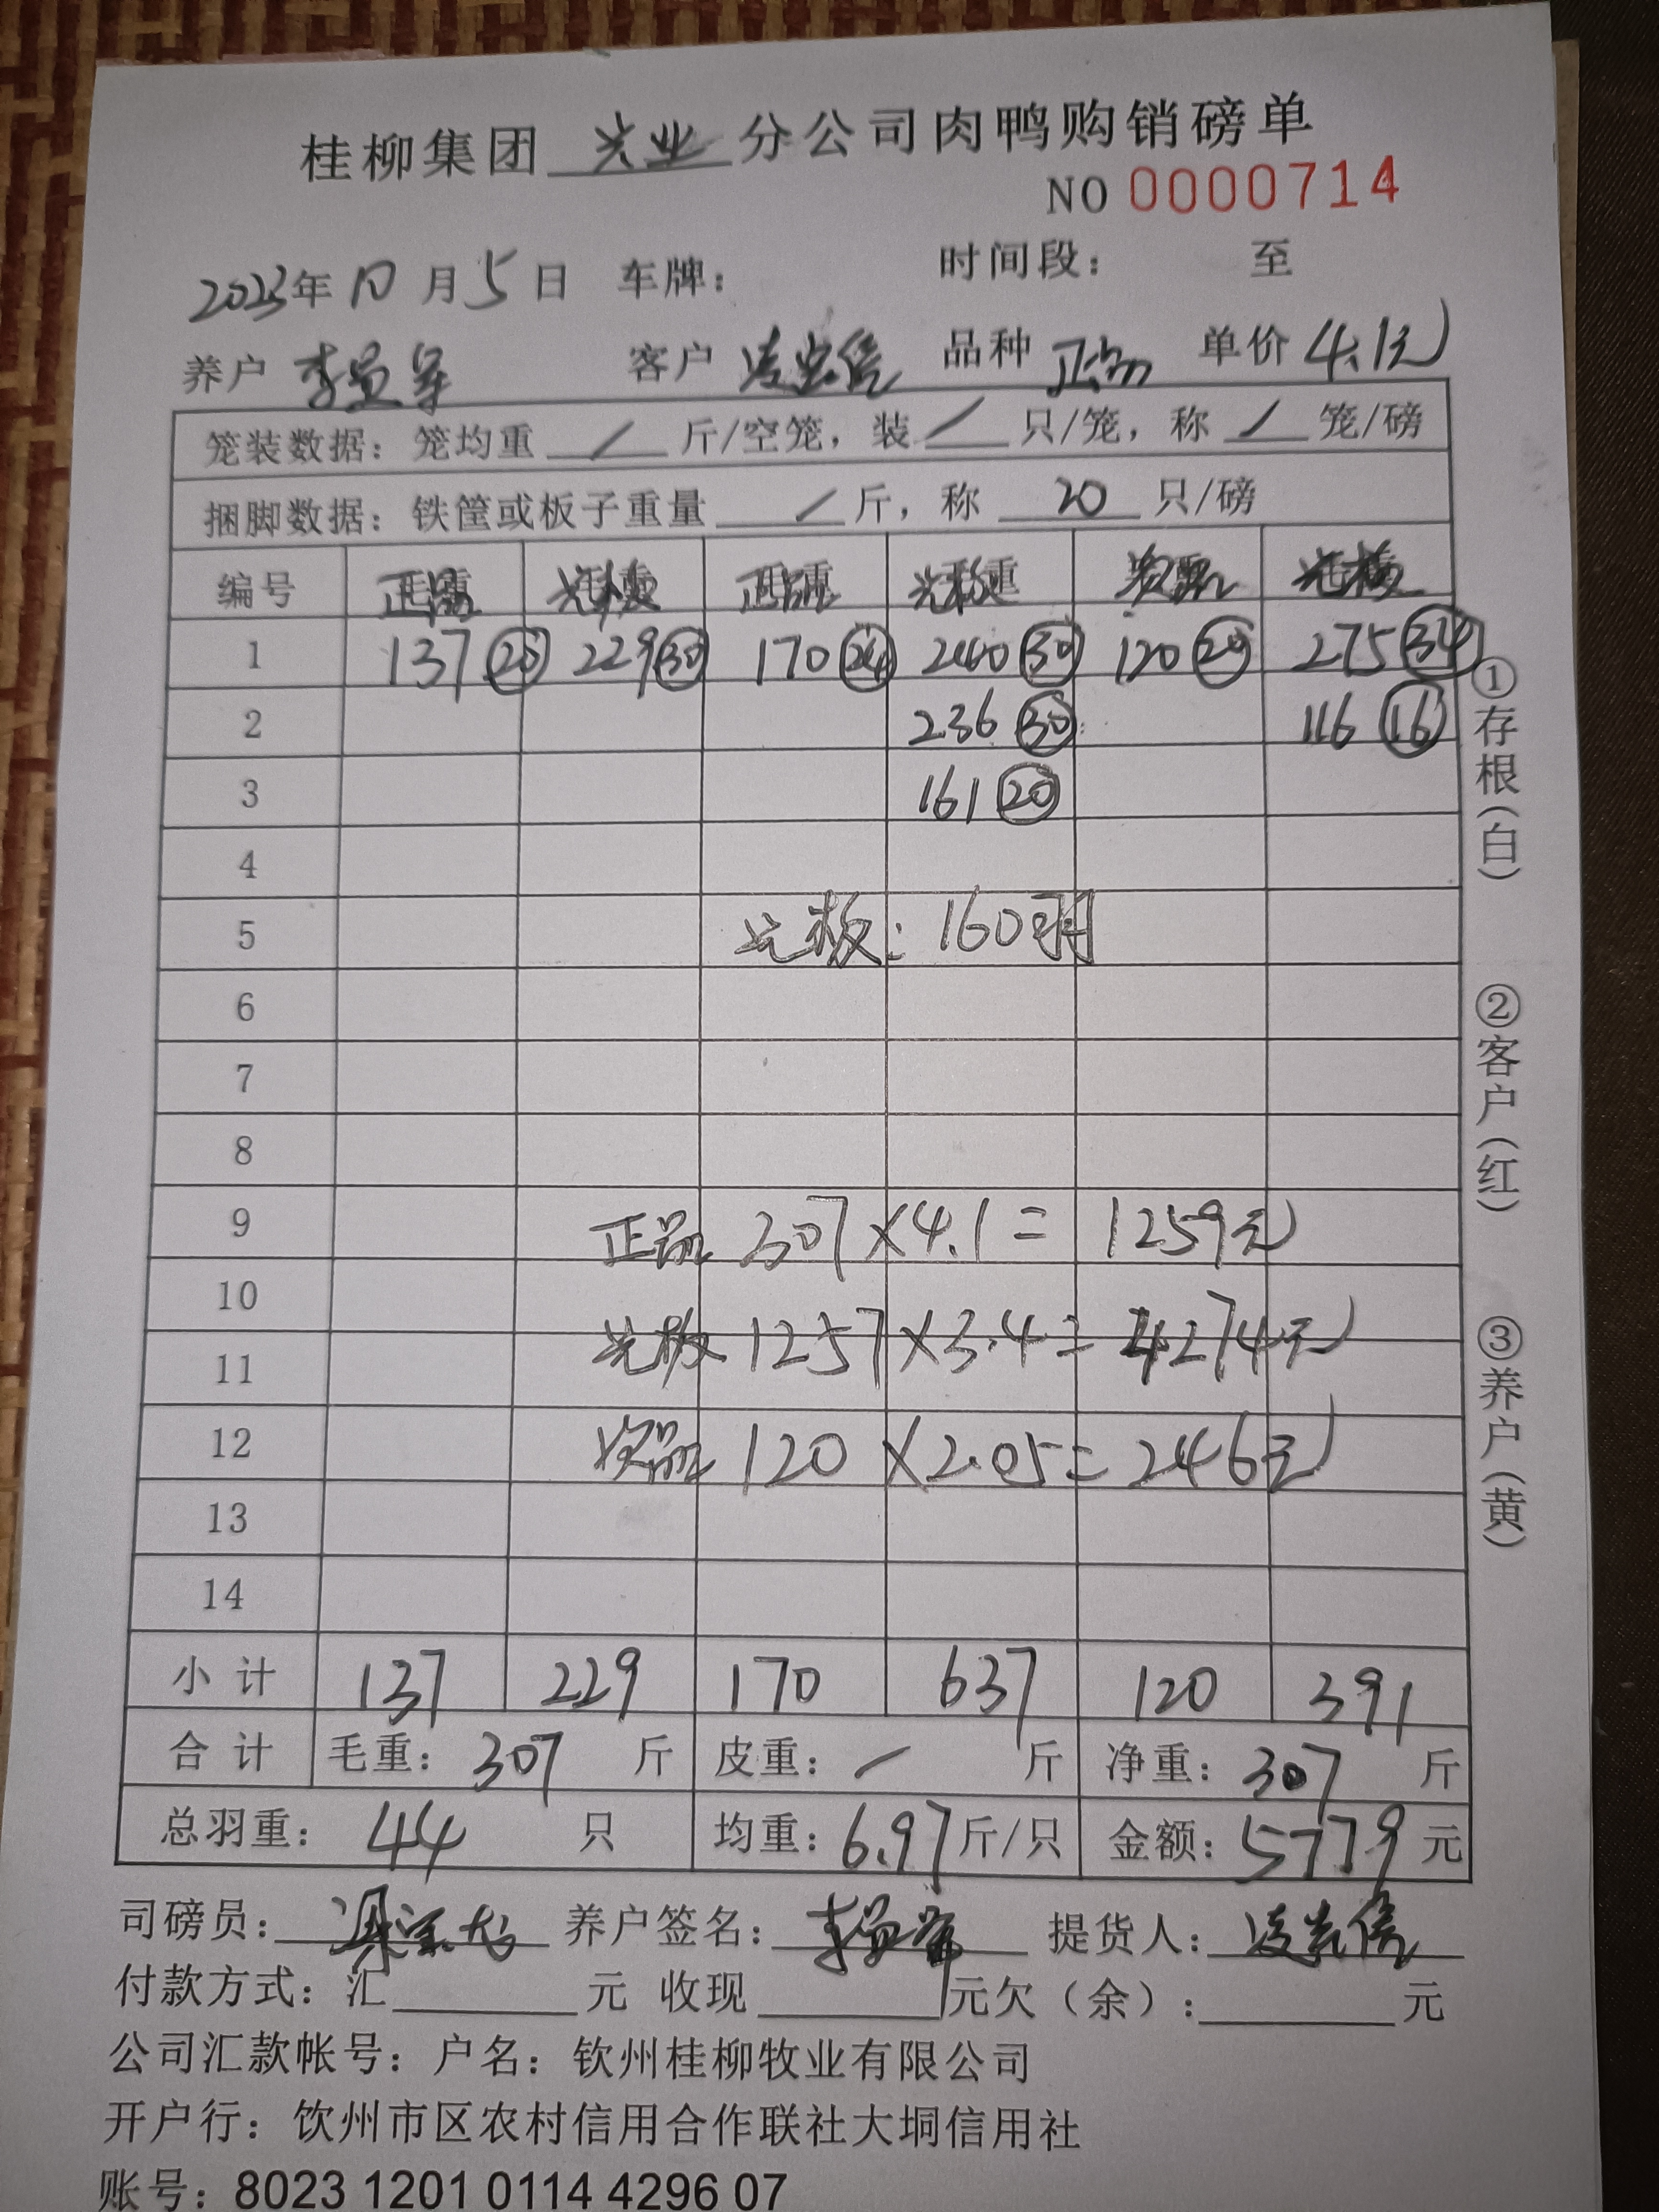 桂柳集团 兴业 分公司肉鸭购销磅单
NO 0000714
2023年 10 月 5 日 车牌: 时间段: 至
养户 客户 品种 正品 单价 4.1元
笼装数据: 笼均重 / 斤/空笼, 装 / 只/笼, 称 / 笼/磅
捆脚数据: 铁筐或板子重量 / 斤, 称 20 只/磅
编号 正品 光板 正品 光板 次品 光板
1 137 20 229 30 170 24 240 30 120 20 275 34
2 236 30 116 16
3 161 20
4
5 光板: 160羽
6
7
8
9 正品 307×4.1= 1259元
10
11 光板 1257×3.4= 4274元
12 次品 120 ×2.05= 246元
13
14
小计 137 229 170 637 120 391
合计 毛重: 307 斤 皮重: / 斤 净重: 307 斤
总羽重: 44 只 均重: 6.97 斤/只 金额: 5779 元
司磅员: 养户签名: 提货人:
付款方式: 汇 元 收现 元欠(余): 元
公司汇款帐号: 户名: 钦州桂柳牧业有限公司
开户行: 饮州市区农村信用合作联社大垌信用社
账号: 8023 1201 0114 4296 07
①存根(白) ②客户(红) ③养户(黄)